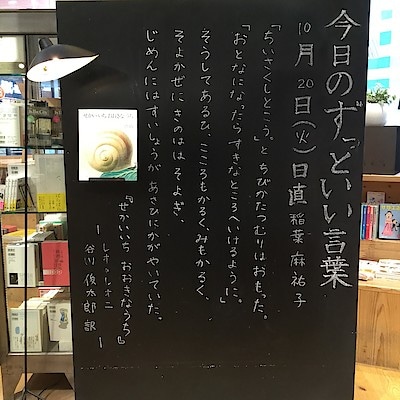 今日のずっといい言葉
10月20日(火)日直 稲葉 麻祐子
「ちいさくしとこう。」とちびかたつむりはおもった。
「おとなになったらすきなところへいけるように。」
そうしてあるひ、こころもかるく、みもかるく、
そよかぜにきのはは そよぎ、
じめんにはすいしょうが あさひにかがやいていた。
『せかいいち おおきなうち』
ーレオ=レオニ
谷川 俊太郎 訳ー
せかいいちおおきなうち